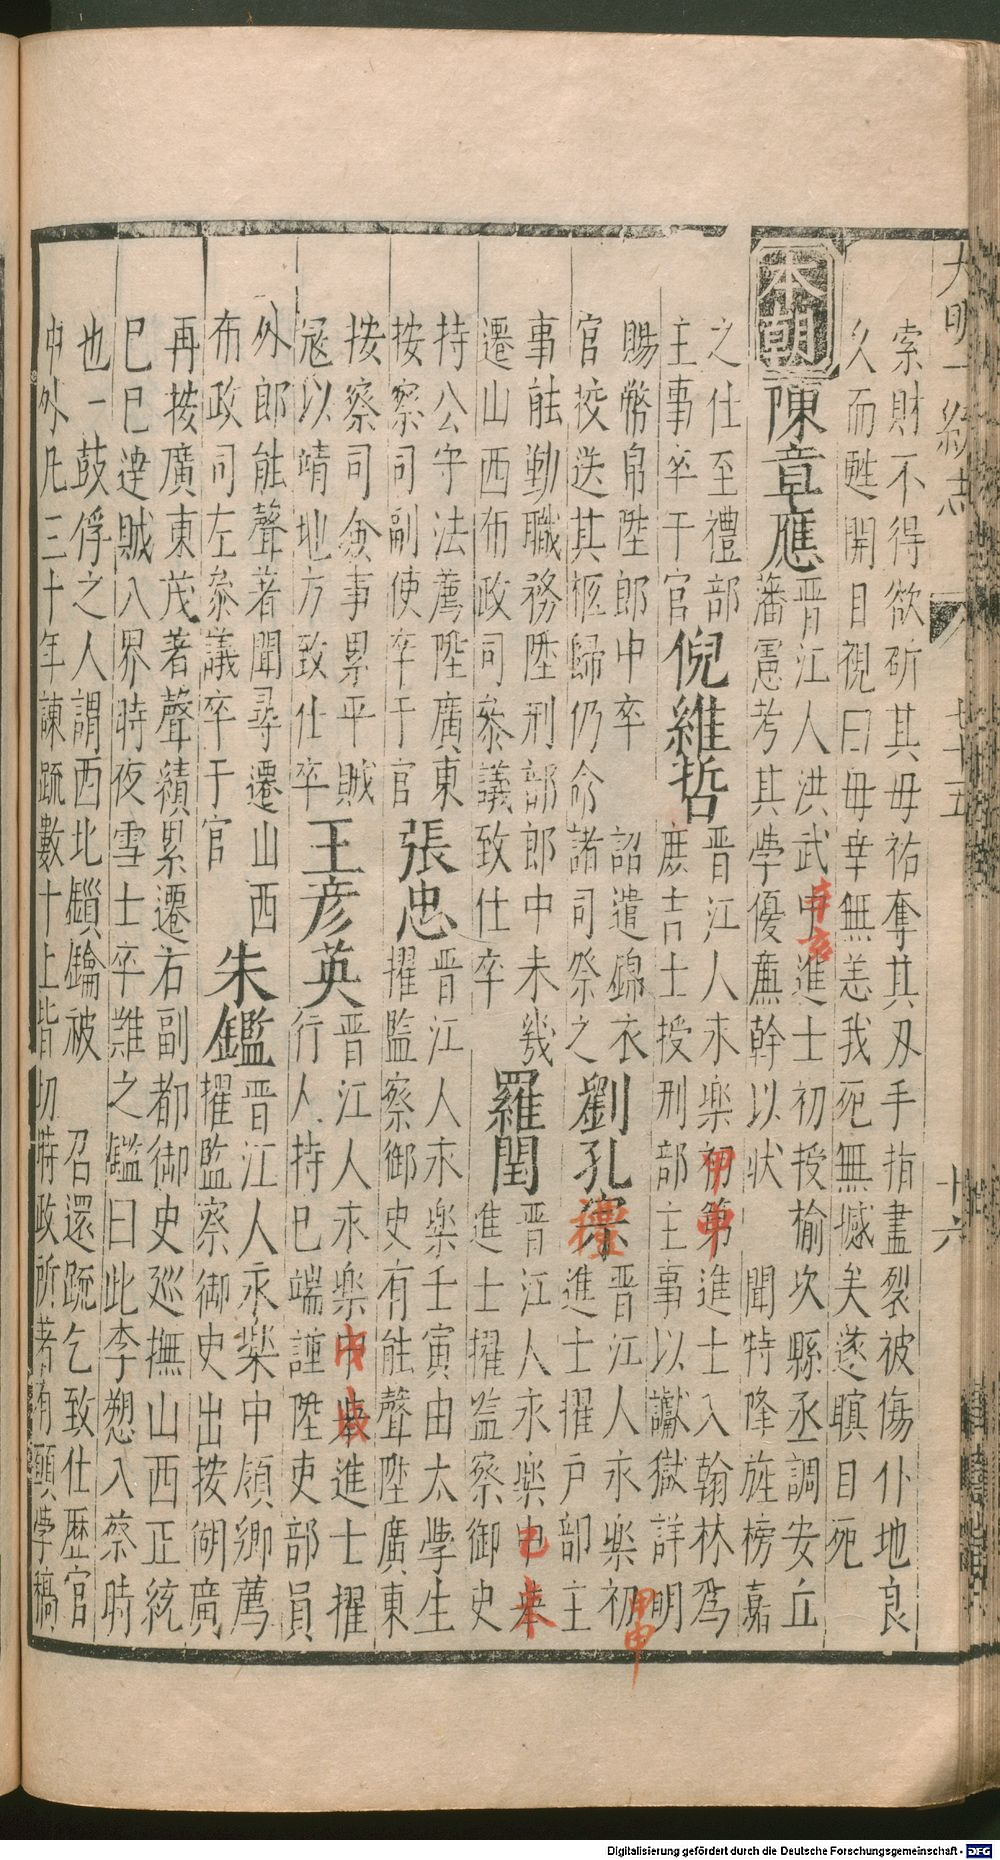 大明一統志 七十五 十六
索財不得欲斫其母祐奪其刃手指盡裂被傷仆地良
久而甦開目視曰母幸無恙我死無憾矣遂瞑目死
本朝
陳章應
晋江人洪武中進士初授榆次縣丞調安丘
辛亥
藩憲考其學優廉幹以狀 聞特隆旌榜嘉
之仕至禮部
主事卒于官
倪維哲
晋江人永樂初第進士入翰林爲
甲申
庶吉士授刑部主事以讞獄詳明
賜幣帛陞郎中卒 詔遣錦衣
官校送其柩歸仍命諸司祭之
劉孔宗
禋
晋江人永樂初
甲申
進士擢户部主
事能勤職務陞刑部郎中未幾
遷山西布政司叅議致仕卒
羅閏
晋江人永樂中舉
己未
進士擢监察御史
持公守法薦陞廣東
按察司副使卒于官
張忠
晋江人永樂壬寅由太學生
擢監察御史有能聲陞廣東
按察司僉事累平賊
冦以靖地方致仕卒
王彦英
晋江人永樂中舉進士擢
戊戌
行人持已端謹陞吏部員
外郎能聲著聞尋遷山西
布政司左叅議卒于官
朱鑑
晋江人永樂中領鄉薦
擢監察御史出按湖廣
再按廣東茂著聲績累遷右副都御史巡撫山西正統
巳巳達賊入界時夜雪士卒難之鑑曰此李愬入蔡時
也一鼓俘之人謂西北鎖鑰被 召還䟽乞致仕歴官
中外凡三十年諫䟽數十上皆切時政所著有願學稿
Digitalisierung gefördert durch die Deutsche Forschungsgemeinschaft - DFG